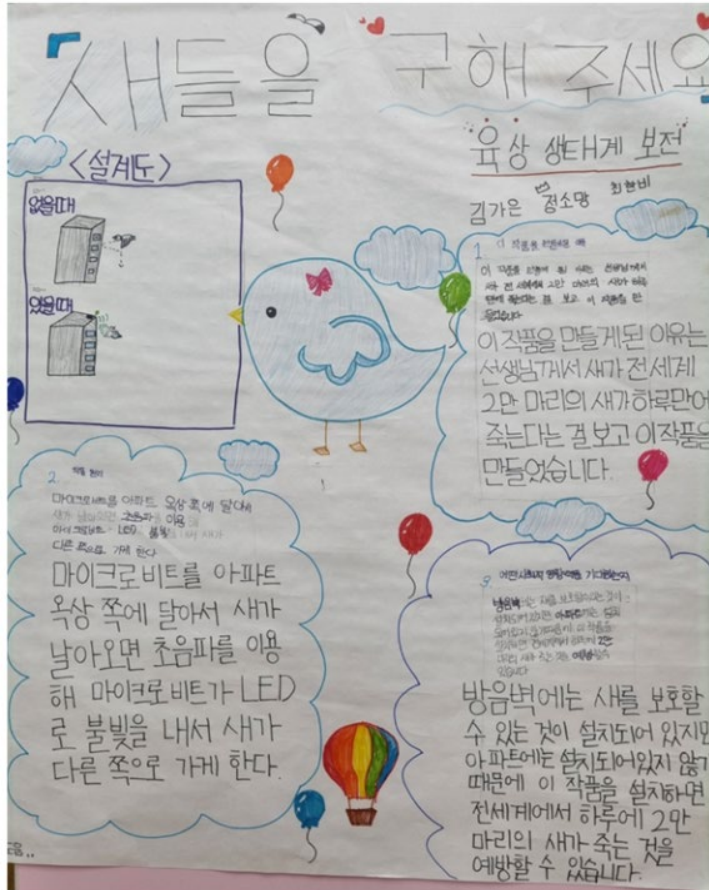 새들을 구해 주세요
육상 생태계 보전
김가은 정소망 최현비
<설계도>
없을때
있을때
1. 이 작품을 만들게된 이유
이 작품을 만들게 된 이유는 선생님께서
새가 전 세계에 2만 마리의 새가 하루
만에 죽는다는 걸 보고 이 작품을 만
들었습니다
이 작품을 만들게된 이유는
선생님께서 새가 전 세계
2만 마리의 새가 하루만에
죽는다는 걸 보고 이작품을
만들었습니다.
2. 작동 원리
마이크로비트를 아파트 옥상 쪽에 달아서
새가 날아오면 초음파를 이용해
마이크로비트 LED 불빛
다른 쪽으로 가게 한다
마이크로비트를 아파트
옥상 쪽에 달아서 새가
날아오면 초음파를 이용
해 마이크로비트가 LED
로 불빛을 내서 새가
다른 쪽으로 가게 한다.
3. 어떤 사회적 영향력을 기대하는지
방음벽에는 새를 보호할
수 있는 것이 설치되어 있지만
아파트에는 설치되어있지 않기
때문에 이 작품을 설치하면
전세계에서 하루에 2만
마리의 새가 죽는 것을
예방할 수 있습니다.